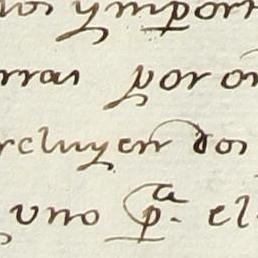 dos ymport
rras por on
recluyen dos
y uno pª. el